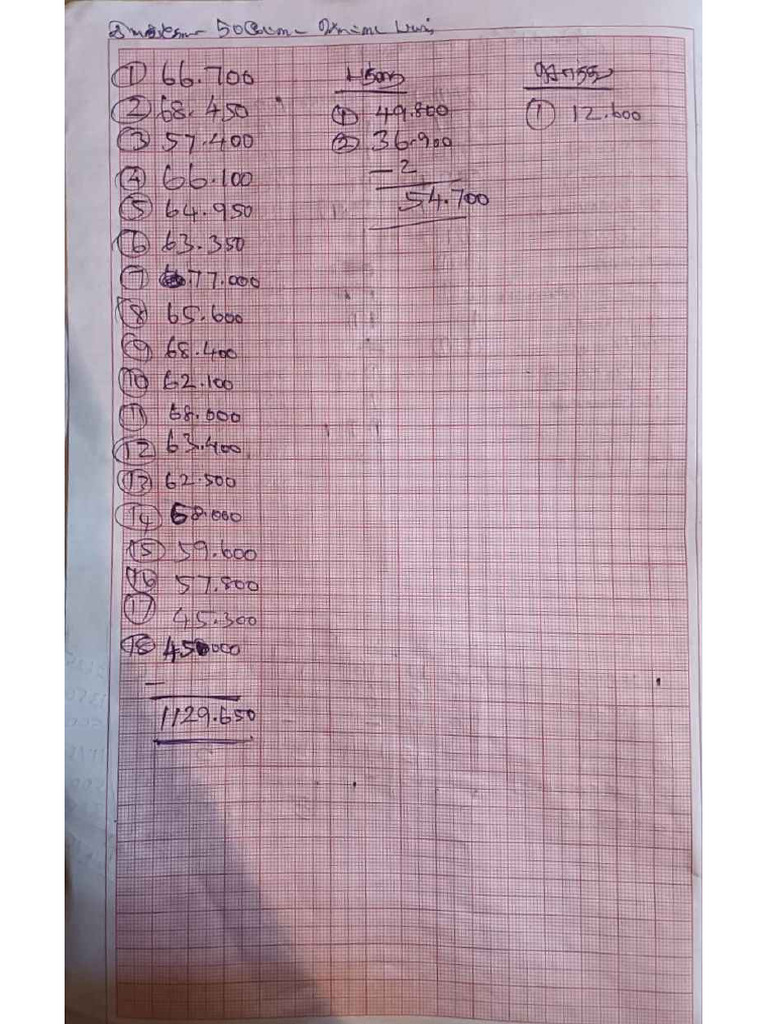 50
① 66.700
② 68.450
③ 57.400
④ 66.100
⑤ 64.950
⑥ 63.350
⑦ 77.000
⑧ 65.600
⑨ 68.400
⑩ 62.100
⑪ 68.000
⑫ 63.400
⑬ 62.500
⑭ 68.000
⑮ 59.600
⑯ 57.800
⑰ 45.300
⑱ 45000
–
1129.650
① 49.800
② 36.900
– 2
54.700
① 12.600